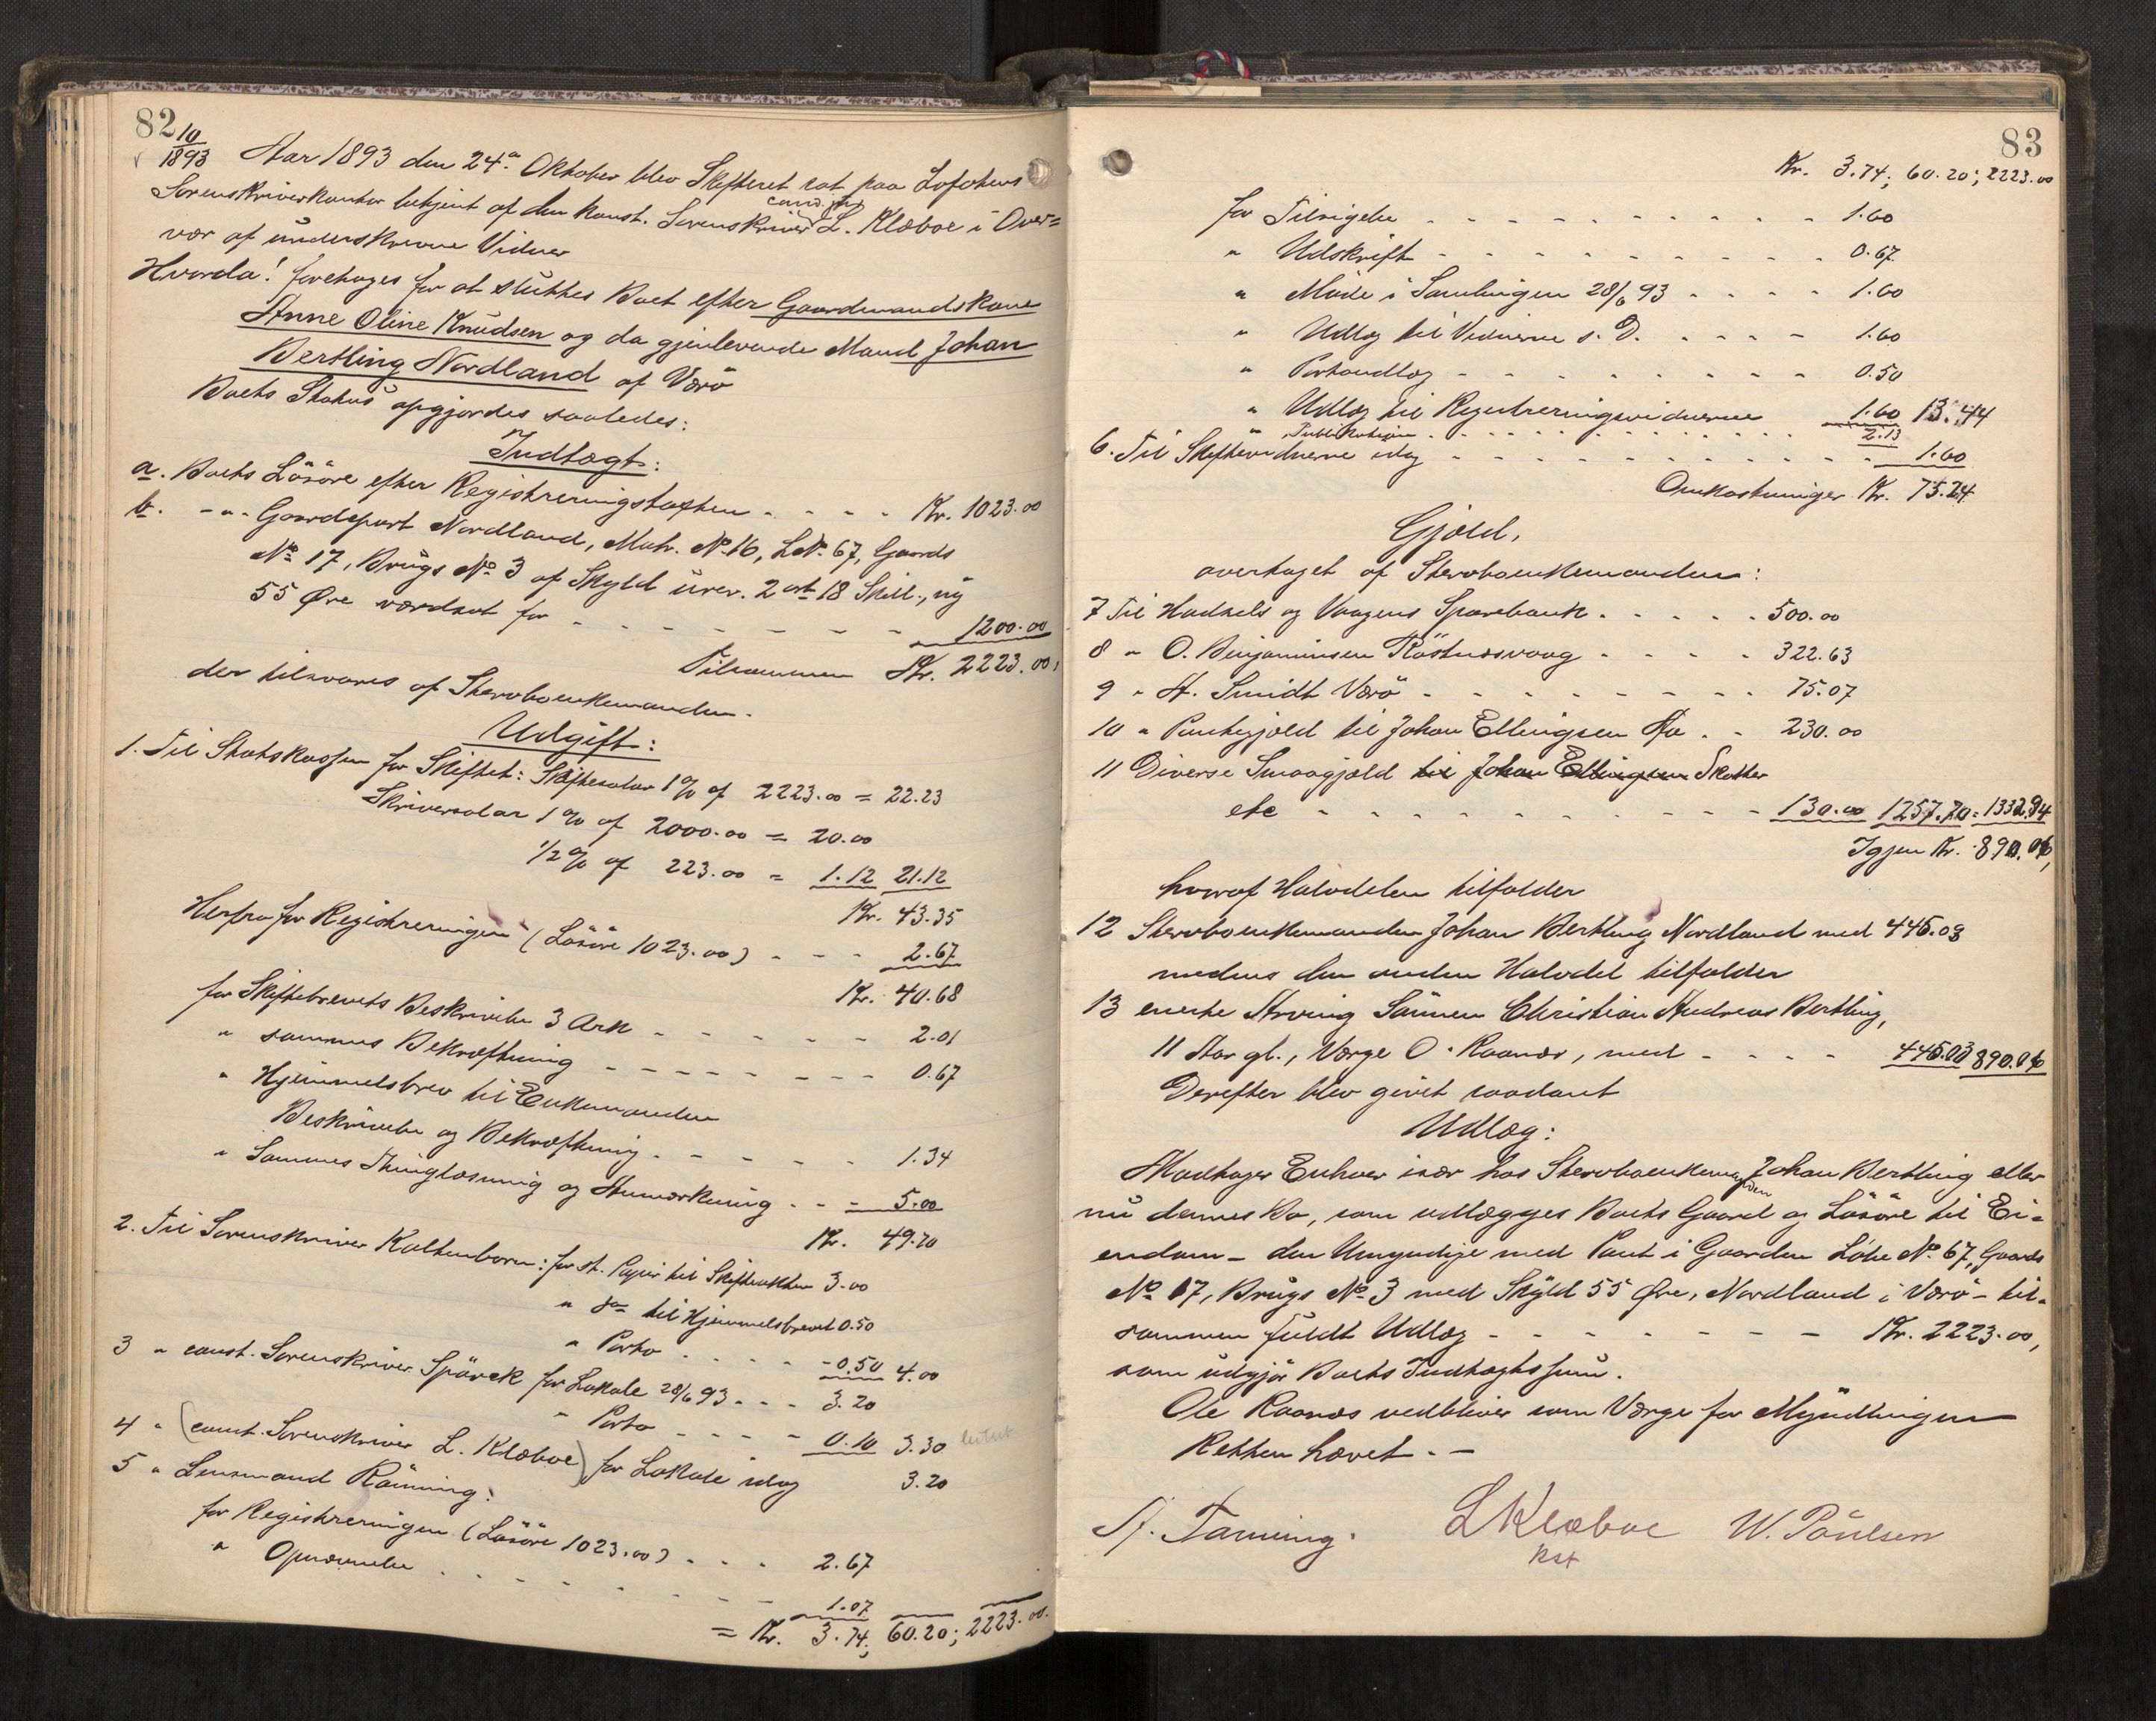 82
10/1893 Aar 1893 den 24de Oktober blev Skifteret sat paa Lofotens
Sorenskriverkontor betjent af den konst. Sorenskriver cand. jur. L. Klæboe i Over=
vær af underskrevne Vidner
Hvorda! foretages for at sluttes Boet efter Gaardmandskone
Anne Oline Knudsen og da gjenlevende Mand Johan
Bertling Nordland af Værö
Boets Status opgjordes saaledes:
Indtægt:
a. Boets Lösöre efter Registreringstaxten - - - - Kr. 1023.00
b. -"- Gaardspart Nordland, Matr. No 16, LNo 67, Gaards
No 17, Brugs No 3 af Skyld urev. 2 ort 18 Skill., ny
55 Øre værdsat for - - - - - - - 1200.00
Tilsammen Kr. 2223.00,
der tilsvares af Stervboenkemanden.
Udgift:
1. Til Statskassen for Skiftet: Skiftesalær 1% af 2223.00 = 22.23
Skriversalær 1% af 2000.00 = 20.00
1/2% af 223.00 = 1.12 21.12
Kr. 43.35
Herfra for Registreringen (Lösöre 1023.00) - - - 2.67
Kr. 40.68
for Skiftebrevets Beskrivelse 3 Ark - - - - - 2.01
" sammes Bekræftning - - - - - - - - 0.67
" Hjemmelsbrev til Enkemanden
Beskrivelse og Bekræftning - - - - - 1.34
" Sammes Thinglæsning og Anmærkning - - - 5.00
Kr. 49.70
2. Til Sorenskriver Kaltenborn: for st. Papir til Skifteakten 3.00
" do til Hjemmelsbrevet 0.50
" Porto - - - - - 0.50 4.00
3 " const. Sorenskriver Spörck for Lokale 28/6 93 - - - 3.20
" Porto - - - - 0.10 3.30
4 " (const. Sorenskriver L. Klæboe) for Lokale idag 3.20
5 " Lensmand Rönning:
for Registreringen (Lösöre 1023.00) - - - 2.67
" Opnævnelse - - - - - - - 1.07
= Kr. 3.74; 60.20; 2223.00.
83
Kr. 3.74; 60.20; 2223.00
for Tilsigelse - - - - - - - - - - 1.60
" Udskrift - - - - - - - - - - 0.67
" Möde i Samlingen 28/6 93 - - - - 1.60
" Udlæg til Vidnerne s. D. - - - - 1.60
" Portoudlæg - - - - - - - - - 0.50
" Udlæg til Registreringsvidnerne 1.60 13.44
" Publikation - - - - - - - - - - 2.13
6. Til Skiftevidnerne idag - - - - - - - - - 1.60
Omkostninger Kr. 75.24
Gjæld,
overtaget af Stervboenkemanden:
7 Til Hadsels og Vaagens Sparebank - - - - - 500.00
8 " O. Benjaminsen Röstnesvaag - - - - 322.63
9 " H. Smidt Værö - - - - - - - - 75.07
10 " Pantegjæld til Johan Ellingsen Aa - - 230.00
11 Diverse Smaagjæld til Johan Ellingsen Skatter
etc - - - - - - - - - - - 130.00 1257.70 = 1332.94
Igjen Kr. 890.06,
hvoraf Halvdelen tilfalder
12 Stervboenkemanden Johan Bertling Nordland med 445.03
medens den anden Halvdel tilfalder
13 eneste Arving Sönnen Christian Andreas Bertling,
11 Aar gl., Værge O. Raanæs, med - - - - 445.03 890.06
Derefter blev givet saadant
Udlæg:
Modtager Enhver især hos Stervboenkemanden Johan Bertling eller
nu dennes Bo, som udlægges Boets Gaard og Lösöre til Ei=
endom - den Umyndige med Pant i Gaarden Löbe No. 67, Gaards
No 17, Brugs No 3 med Skyld 55 Øre, Nordland i Værö - til=
sammen fuldt Udlæg - - - - - - - Kr. 2223.00,
som udgjör Boets Indtægtssum.
Ole Raanæs vedbliver som Værge for Myndlingen
Retten hævet. -
LKlæboe W. Paulsen
kst